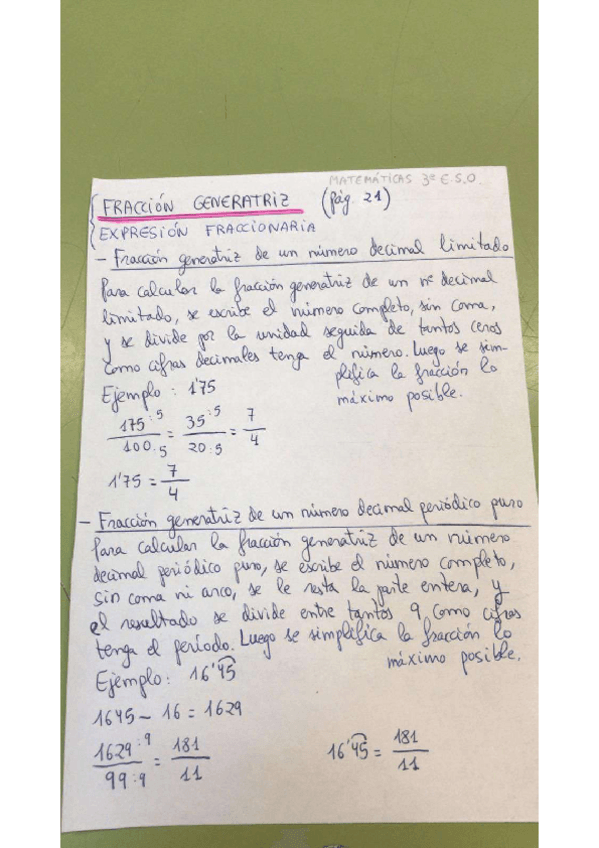 MATEMÁTICAS 3º E.S.O.
FRACCIÓN GENERATRIZ (Pág. 21)
EXPRESIÓN FRACCIONARIA
- Fracción generatriz de un número decimal limitado
Para calcular la fracción generatriz de un nº decimal
limitado, se escribe el número completo, sin coma,
y se divide por la unidad seguida de tantos ceros
como cifras decimales tenga el número. Luego se sim-
plifica la fracción lo
máximo posible.
Ejemplo: 1'75
175:5/100:5 = 35:5/20:5 = 7/4
1'75 = 7/4
- Fracción generatriz de un número decimal periódico puro
Para calcular la fracción generatriz de un número
decimal periódico puro, se escribe el número completo,
sin coma ni arco, se le resta la parte entera, y
el resultado se divide entre tantos 9 como cifras
tenga el período. Luego se simplifica la fracción lo
máximo posible.
Ejemplo: 16'4͡5
1645 - 16 = 1629
1629:9/99:9 = 181/11
16'4͡5 = 181/11